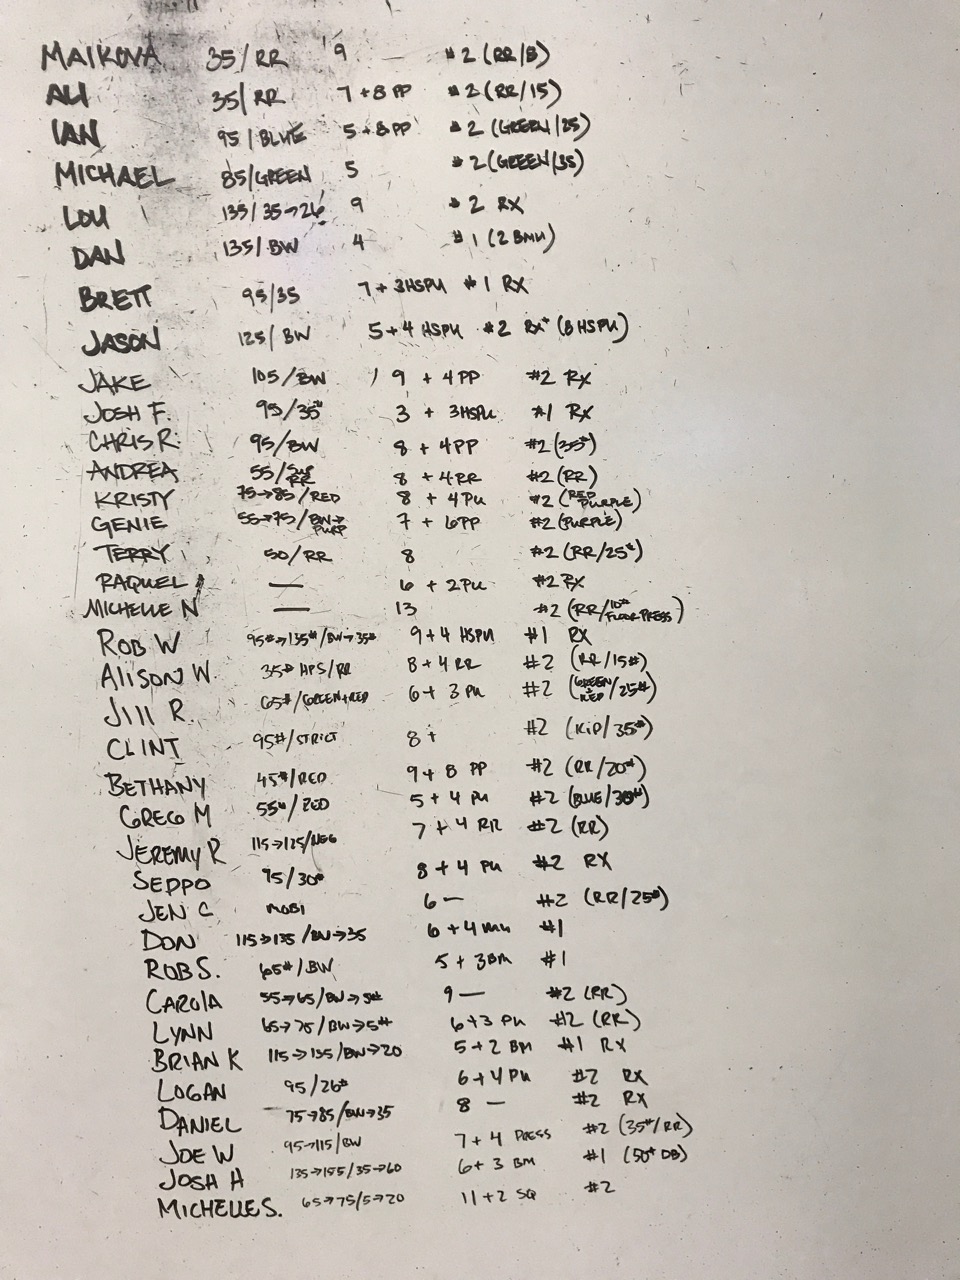 MAIKOVA 35/RR 9 #2 (RR/8)
ALI 35/RR 7 + 8 PP #2 (RR/15)
IAN 95/BLUE 5 + 8 PP #2 (GREEN/25)
MICHAEL 85/GREEN 5 #2 (GREEN/35)
LOU 135/35→26 9 #2 RX
DAN 135/BW 4 #1 (2 BMU)
BRETT 95/35 7 + 3 HSPU #1 RX
JASON 125/BW 5 + 4 HSPU #2 RX+ (8 HSPU)
JAKE 105/BW 9 + 4 PP #2 RX
JOSH F. 95/35# 3 + 3 HSPU #1 RX
CHRIS R. 95/BW 8 + 4 PP #2 (35#)
ANDREA 55/RR 8 + 4 RR #2 (RR)
KRISTY 75→85/RED 8 + 4 PU #2 (RED PURPLE)
GENIE 55→75/BW→PURP 7 + 6 PP #2 (PURPLE)
TERRY 50/RR 8 #2 (RR/25#)
RAQUEL — 6 + 2 PU #2 RX
MICHELLE N — 13 #2 (RR/10# FLOOR PRESS)
ROB W 95#→135#/BW→35# 9 + 4 HSPU #1 RX
ALISON W. 35# HPS/RR 8 + 4 RR #2 (RR/15#)
JILL R. 65#/GREEN+RED 6 + 3 PU #2 (GREEN + RED/25#)
CLINT 95#/STRICT 8 + #2 (KIP/35#)
BETHANY 45#/RED 9 + 8 PP #2 (RR/20#)
GREGO M 55#/RED 5 + 4 PU #2 (BLUE/30#)
JEREMY R 115→125/NEG 7 + 4 RR #2 (RR)
SEPPO 95/30# 8 + 4 PU #2 RX
JEN C MOBI 6 — #2 (RR/25#)
DON 115→135/BW→35 6 + 4 MU #1
ROB S. 65#/BW 5 + 3 BM #1
CAROLA 55→65/BW→5# 9 — #2 (RR)
LYNN 65→75/BW→5# 6 + 3 PU #2 (RR)
BRIAN K 115→135/BW→20 5 + 2 BM #1 RX
LOGAN 95/26# 6 + 4 PU #2 RX
DANIEL 75→85/BW→35 8 — #2 RX
JOE W 95→115/BW 7 + 4 PRESS #2 (35#/RR)
JOSH H 135→155/35→60 6 + 3 BM #1 (50# DB)
MICHELLE S. 65→75/5→20 11 + 2 SQ #2